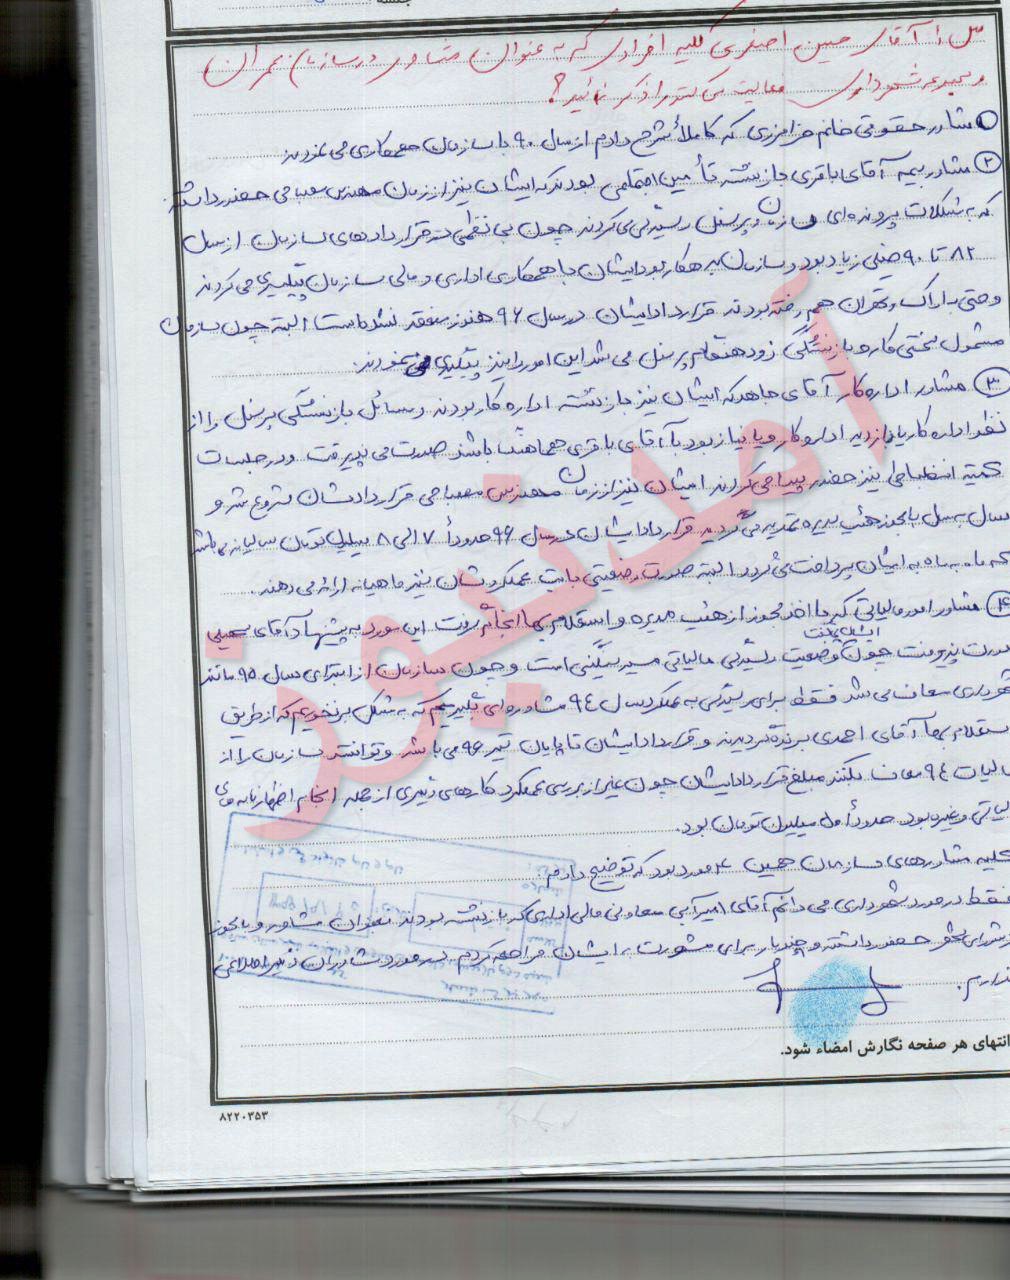 جلسه
س ۱: آقای حسین اصغری کلیه افرادی که به عنوان مشاور در سازمان عمران
و مجموعه شهرداری فعالیت می کنند را ذکر نمائید؟
① مشاور حقوقی خانم که کاملاً شرح دادم از سال ۹۰ با سازمان همکاری می نمودند
② مشاور بیمه آقای باقری بازنشسته تأمین اجتماعی بودند که ایشان نیز از زمان مهندس حضور داشته
که مشکلات پرونده ای سازمان و پرسنل رسیدگی می کردند چون بی نظمی در قراردادهای سازمان از سال
۸۲ تا ۹۰ خیلی زیاد بود و سازمان بدهکار بود ایشان با همکاری اداری و مالی سازمان پیگیری می کردند
و حتی به اراک و تهران هم رفته بودند قرارداد ایشان در سال ۹۶ هنوز منعقد نشده است البته چون سازمان
مشمول سختی کار و بازنشستگی زود هنگام پرسنل می شد این امور را نیز پیگیری می نمودند.
③ مشاور اداره کار آقای جاهد که ایشان نیز بازنشسته اداره کار بودند و مسائل بازنشستگی پرسنل را از
نظر اداره کار یا بازدید اداره کار و یا نیاز بود با آقای باقری هماهنگ باشند صورت می پذیرفت و در جلسات
کمیته انضباطی نیز حضور پیدا می کردند ایشان نیز از زمان مهندس قراردادشان شروع شد و
سال به سال با مجوز هئیت مدیره تمدید می گردید قرارداد ایشان در سال ۹۶ حدوداً ۷ الی ۸ میلیون تومان سالیانه می باشد
که ماه به ماه به ایشان پرداخت می گردد البته صورت وضعیتی بابت عملکردشان نیز ماهیانه ارائه می دهند.
④ مشاور امور مالیاتی که با اخذ مجوز از هئیت مدیره و استعلام بها انجام پذیرفت این مورد به پیشنهاد آقای
صورت پذیرفت چون وضعیت رسیدگی مالیاتی مسیر سنگینی است و چون سازمان از ابتدای سال ۹۵ مانند
شهرداری معاف می شد فقط برای رسیدگی به عملکرد سال ۹۴ مشاوره ای بگیریم که به مشکل برنخوریم که از طریق
استعلام بها آقای احمدی برنده گردیدند و قرارداد ایشان تا پایان تیر ۹۶ می باشد و توانستند سازمان را از
مالیات ۹۴ معاف بکنند مبلغ قرارداد ایشان چون غیر از بررسی عملکرد کارهای دیگری از جمله انجام اظهارنامه های
مالیاتی و غیره بود حدوداً میلیون تومان بود.
کلیه مشاورهای سازمان همین ۴ مورد بود که توضیح دادم
فقط در مورد شهرداری می دانم آقای معاونی مالی اداری که بازنشسته بودند بعنوان مشاور و با مجوز
شورای شهر حضور داشته و چند بار برای مشورت به ایشان مراجعه کردم در مورد مشاوران دیگر اطلاعی
ندارم.
انتهای هر صفحه نگارش امضاء شود.
۸۲۲۰۳۵۳
آمدنیوز